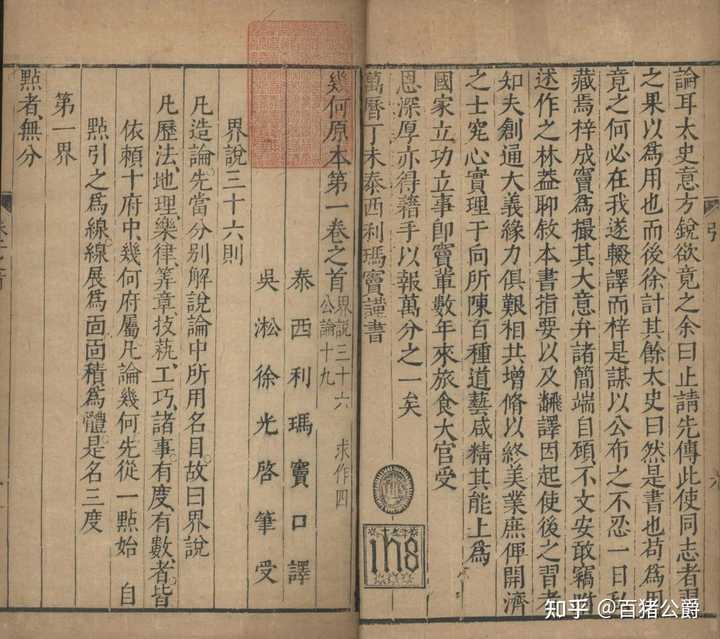 論耳太史意方銳欲竟之余曰止請先傳此使同志者習
之果以爲用也而後徐計其餘太史曰然是書也苟爲用
竟之何必在我遂輟譯而梓是謀以公布之不忍一日私
藏焉梓成竇爲撮其大意弁諸簡端自顧不文安敢竊附
述作之林葢聊敘本書指要以及飜譯因起使後之習者
知夫創通大義緣力俱艱相共增脩以終美業庶俾開濟
之士究心實理于向所陳百種道藝咸精其能上爲
國家立功立事卽竇輩數年來旅食大官受
恩深厚亦得藉手以報萬分之一矣
萬曆丁未泰西利瑪竇謹書
ihs
引
幾何原本第一卷之首 界說三十六 公論十九 求作四
泰西利瑪竇口譯
吳淞徐光啓筆受
界說三十六則
凡造論先當分別解說論中所用名目故曰界說
凡歷法、地理、樂律、筭章、技藝、工巧、諸事、有度、有數者、皆
依賴十府中、幾何府屬凡論幾何先從一點始 自
點引之爲線線展爲面面積爲體是名三度
第一界
點者、無分
知乎 @百猪公爵